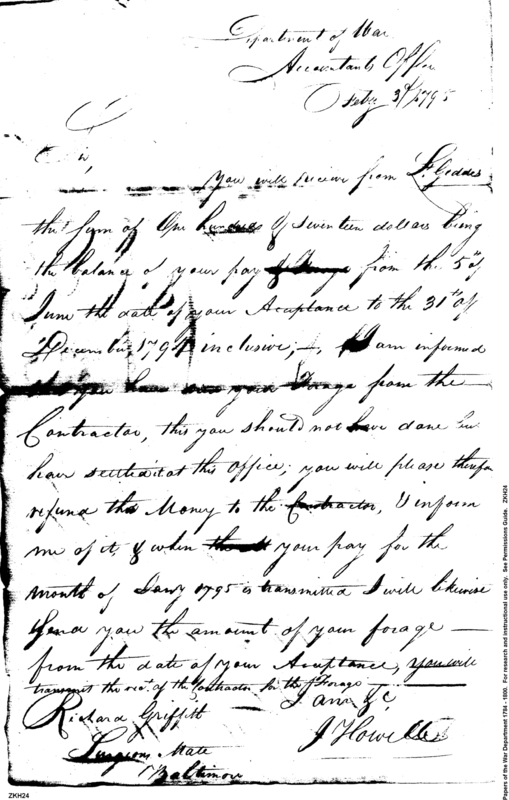 Department of War
Accountants Office
Feby 3d 1795
Sir,
you will receive from S. Geddes
the sum of One hundred & seventeen dollars being
the balance of your pay & forage from the 5th of
June the date of your Acceptance to the 31st of
December 1794 inclusive; I am informed
that you have your Forage from the
Contractor, this you should not have done but
have settled it at this office; you will please therefor
refund the Money to the Contractor, & inform
me of it, & when your pay for the
month of Jany 1795 is transmitted I will likewise
send you the amount of your forage
from the date of your Acceptance, you will
transmit the rect. of the Contractor for the Forage
I am &c
Richard Griffith
J Howell
Surgeons Mate
Baltimore
ZKH24
Papers of the War Department 1784 - 1800. For research and instructional use only. See Permissions Guide. ZKH24